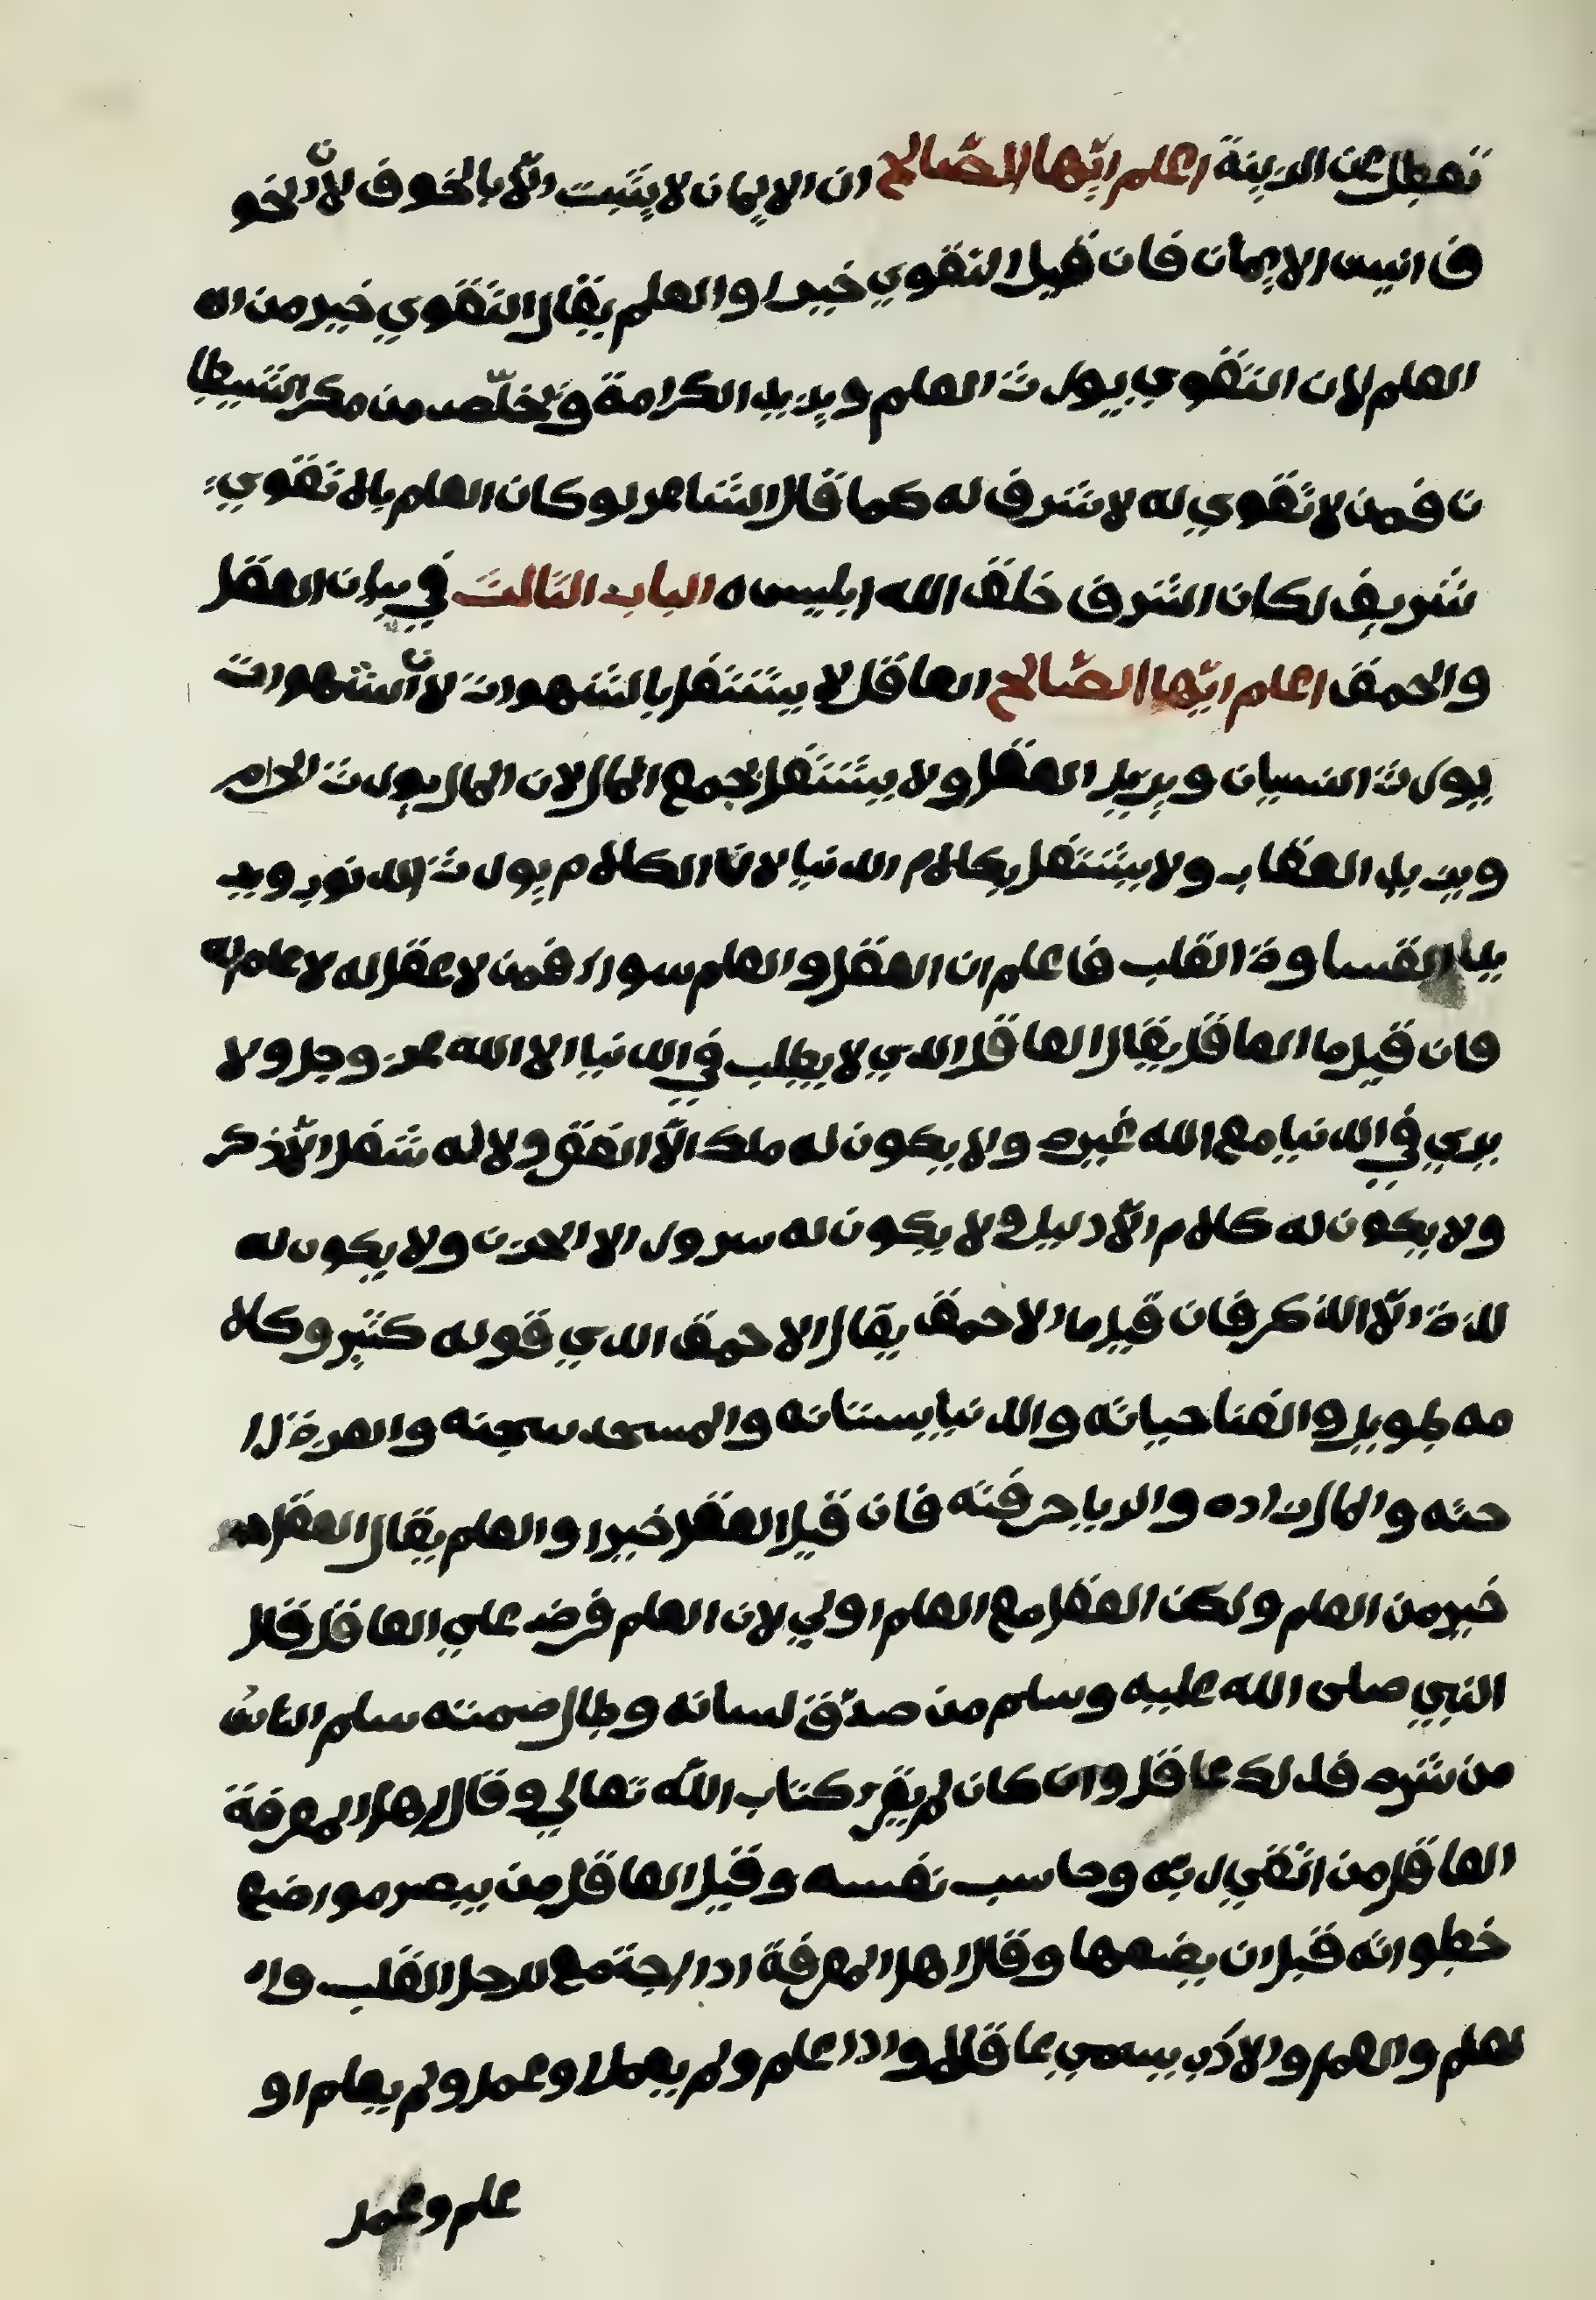 تعطل عن الزينة اعلم ايّها الصّالح ان الايمان لا يثبت الّا بالخوف لانّ الخو
ف انيس الايمان فان قيل التقوي خيرا والعلم يقال التقوي خير من اله
العلم لان التقوي يورث العلم ويزيد الكرامة ويخلّصه من مكر الشيطا
ن فمن لا تقوي له لا شرف له كما قال الشاعر لو كان العلم بلا تقوي
شريف لكان اشرف خلق الله ابليس ه الباب الثالث في بيان العقل
والحمق اعلم ايّها الصّالح العاقل لا يشتغل بالشهوات لانّ الشهوات
يورث النسيان ويزيل العقل ولا يشتغل بجمع المال لان المال يورث الحرام
ويزيد العقاب ولا يشتغل بكلام الدنيا لان الكلام يورث الدنور ويز
يد القساوة القلب فاعلم ان العقل والعلم سوا فمن لا عقل له لا علم له
فان قيل ما العاقل يقال العاقل الدي لا يطلب في الدنيا الا الله عز وجل ولا
يري في الدنيا مع الله غيره ولا يكون له ملك الّا الفقر ولا له شغل الّا ذكر
ولا يكون له كلام الّا دليل ولا يكون له سرور الا الحزن ولا يكون له
لذة الّا الذكر فان قيل ما الاحمق يقال الاحمق الدي قوله كثير وكلا
مه طويل والغنا حياته والدنيا بستانه والمسجد سجنه والعرة را
حته والمال زاده والربا حرفته فان قيل العقل خيرا والعلم يقال العقل
خير من العلم ولكن العقل مع العلم اولي لان العلم فرض علي العاقل قال
النبي صلى الله عليه وسلم من صدّق لسانه وطال صمته سلم الناس
من شره فدلك عاقل وان كان لم يقرء كتاب الله تعالي وقال اهل المعرفة
العاقل من اتقي ربّه وحاسب نفسه وقيل العاقل من يبصر مواضع
خطواته قبل ان يضعها وقال اهل المعرفة ادا اجتمع للرجل القلب وا
لعلم والعمل والادب يسمي عاقلا واذا علم ولم يعمل او عمل ولم يعلم او
علم وعمل